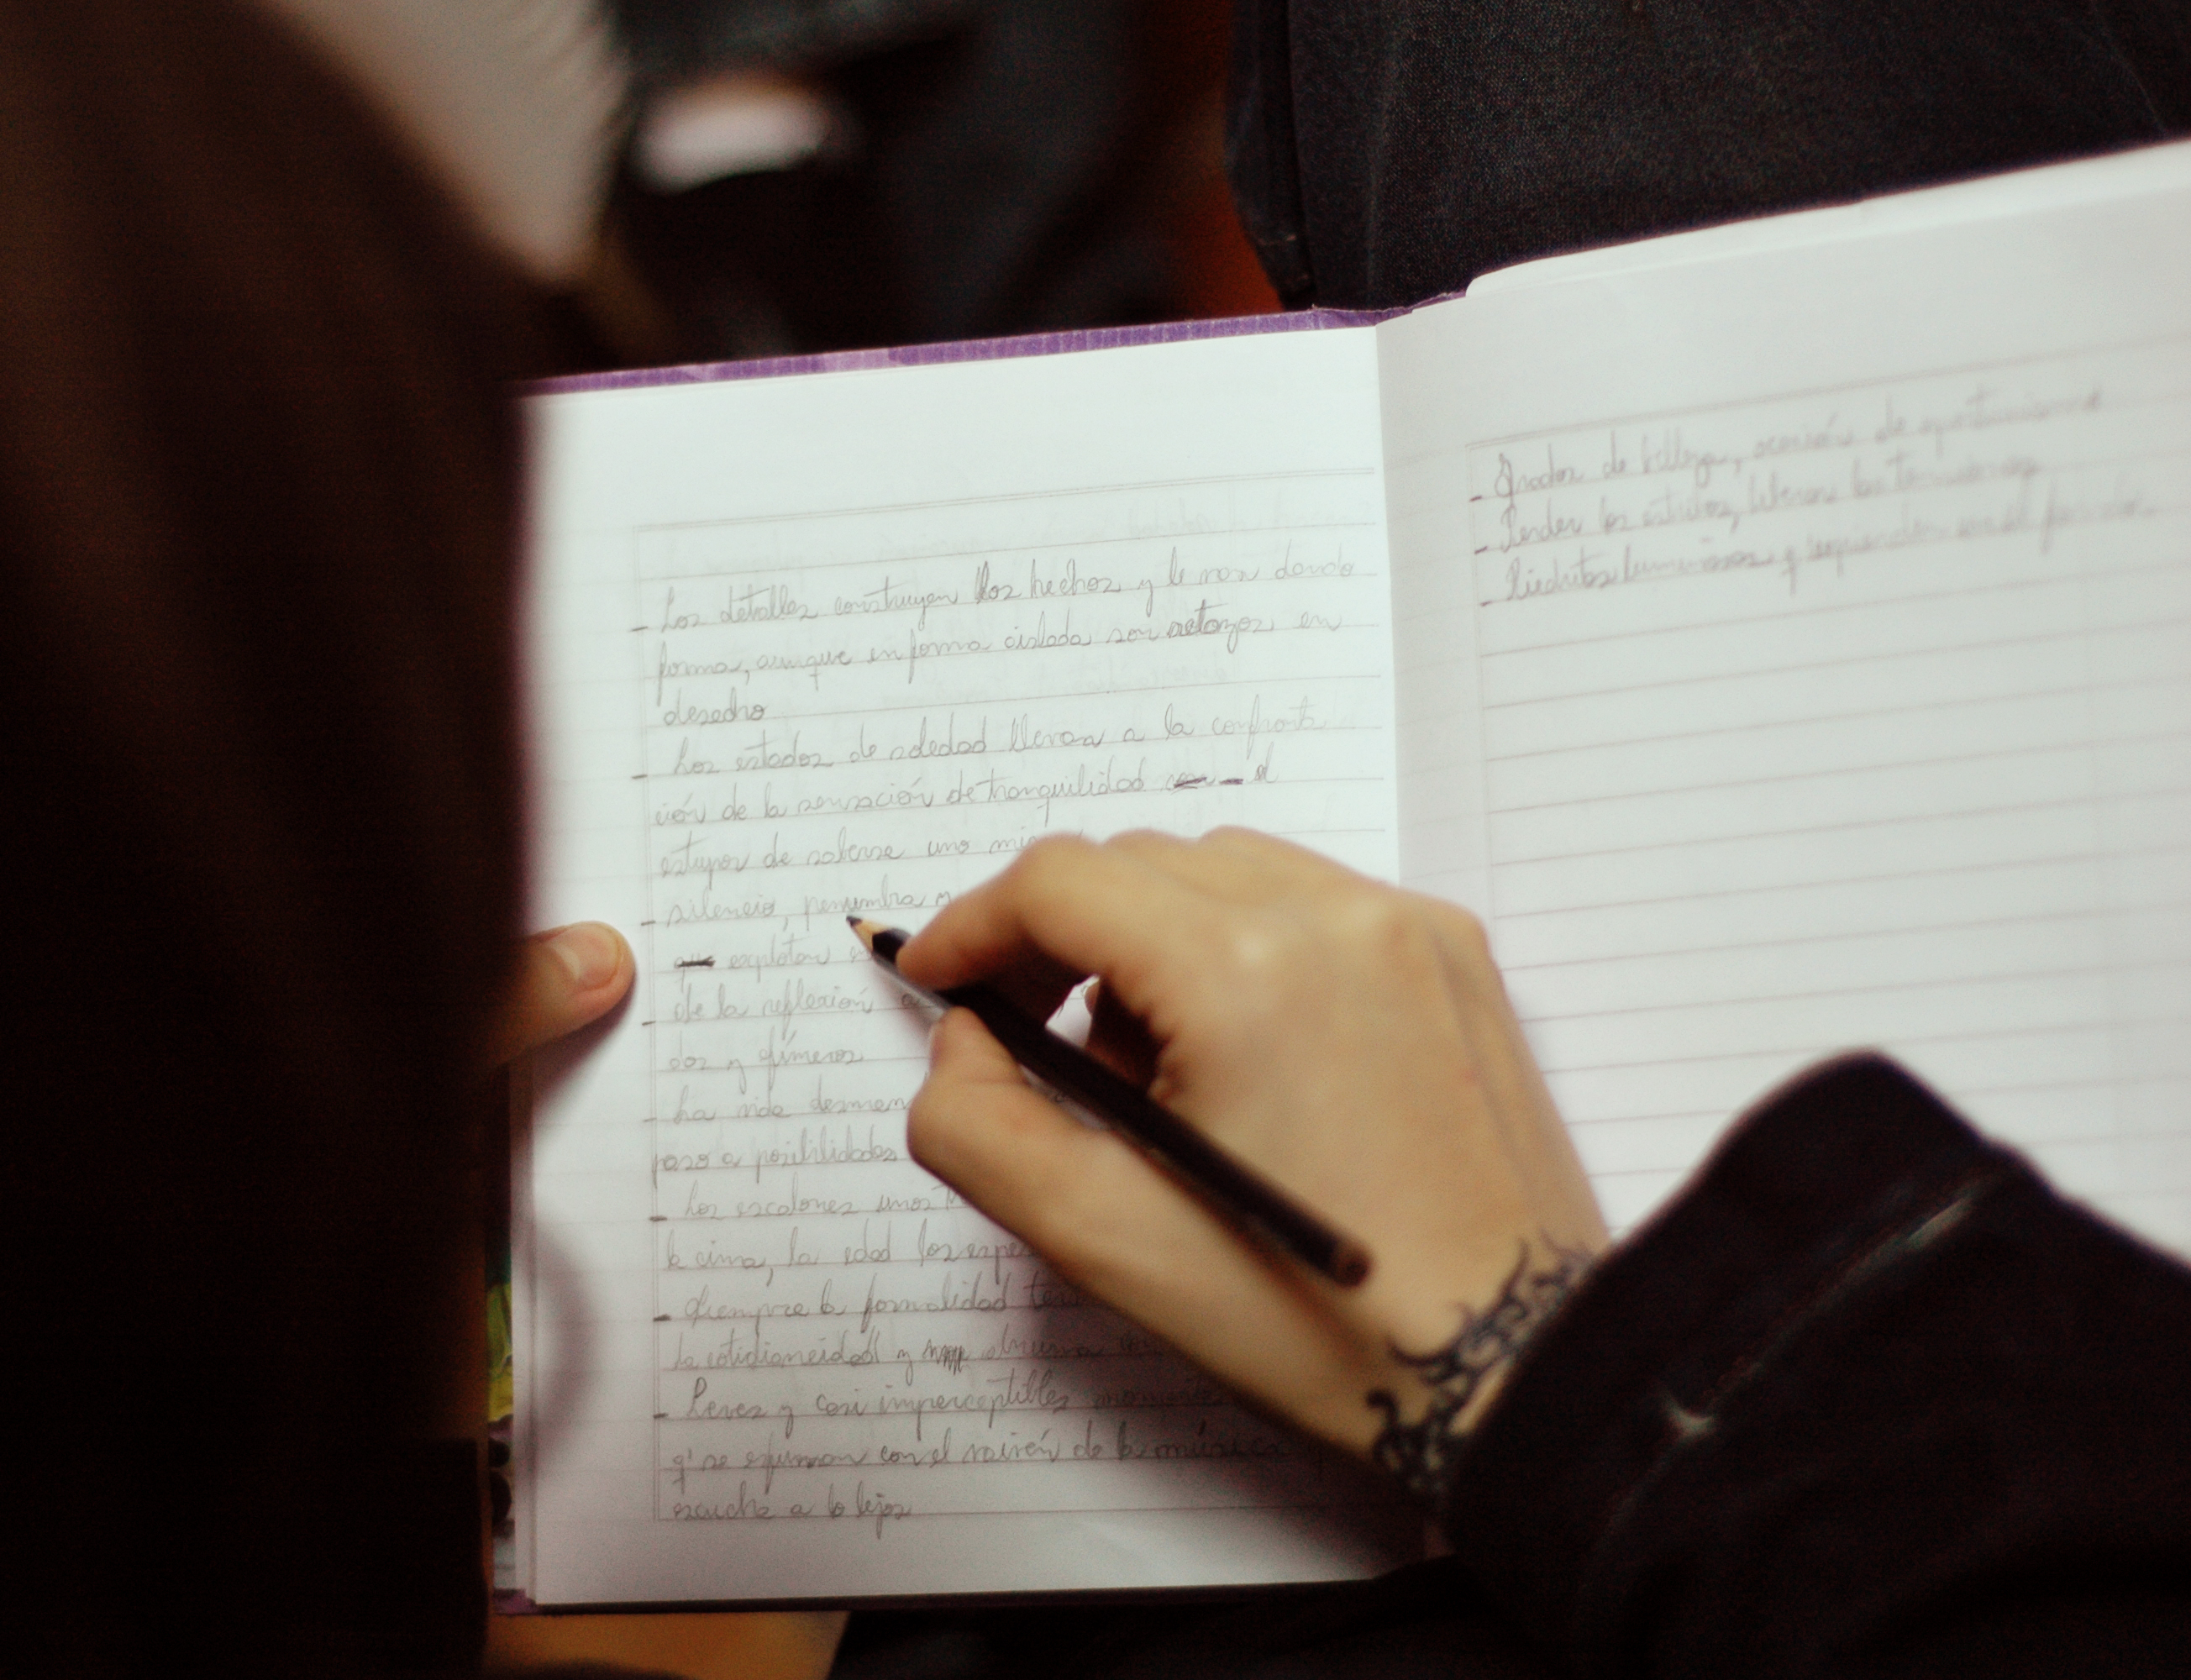 - Los detalles construyen los hechos y le van dando
forma, aunque en forma aislada son retazos en
desecho
- Los estados de soledad llevan a la confronta
ción de la sensación de tranquilidad el
estupor de saberse uno
- silencio, penumbra y
explotan
de la reflexión
dos y efímeros
- La vida
paso a posibilidades
- Los escalones unos
la cima, la edad los
- Siempre la formalidad
la cotidianeidad y abruma
- Leves y casi imperceptibles momentos
q' se esfuman con el vaivén de la música
escucha a lo lejos
- Grados de belleza, ocasión de
- Perder los estribos, liberar las tensiones
- Piedritas luminosas y